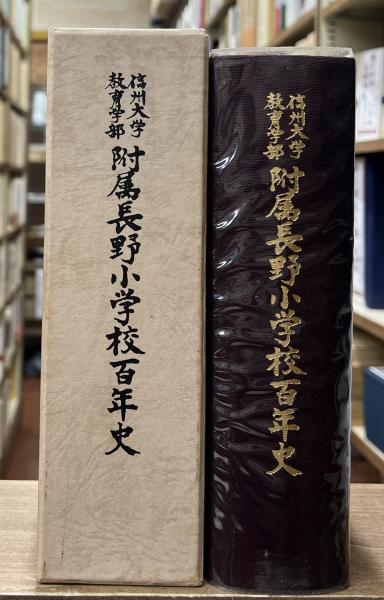 信州大学
教育学部
附属長野小学校百年史
信州大学
教育学部
附属長野小学校百年史